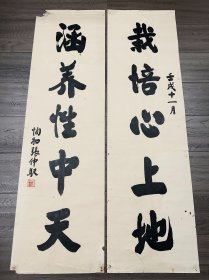 栽培心上地
壬戌十一月
涵养性中天
陶初张仲毅